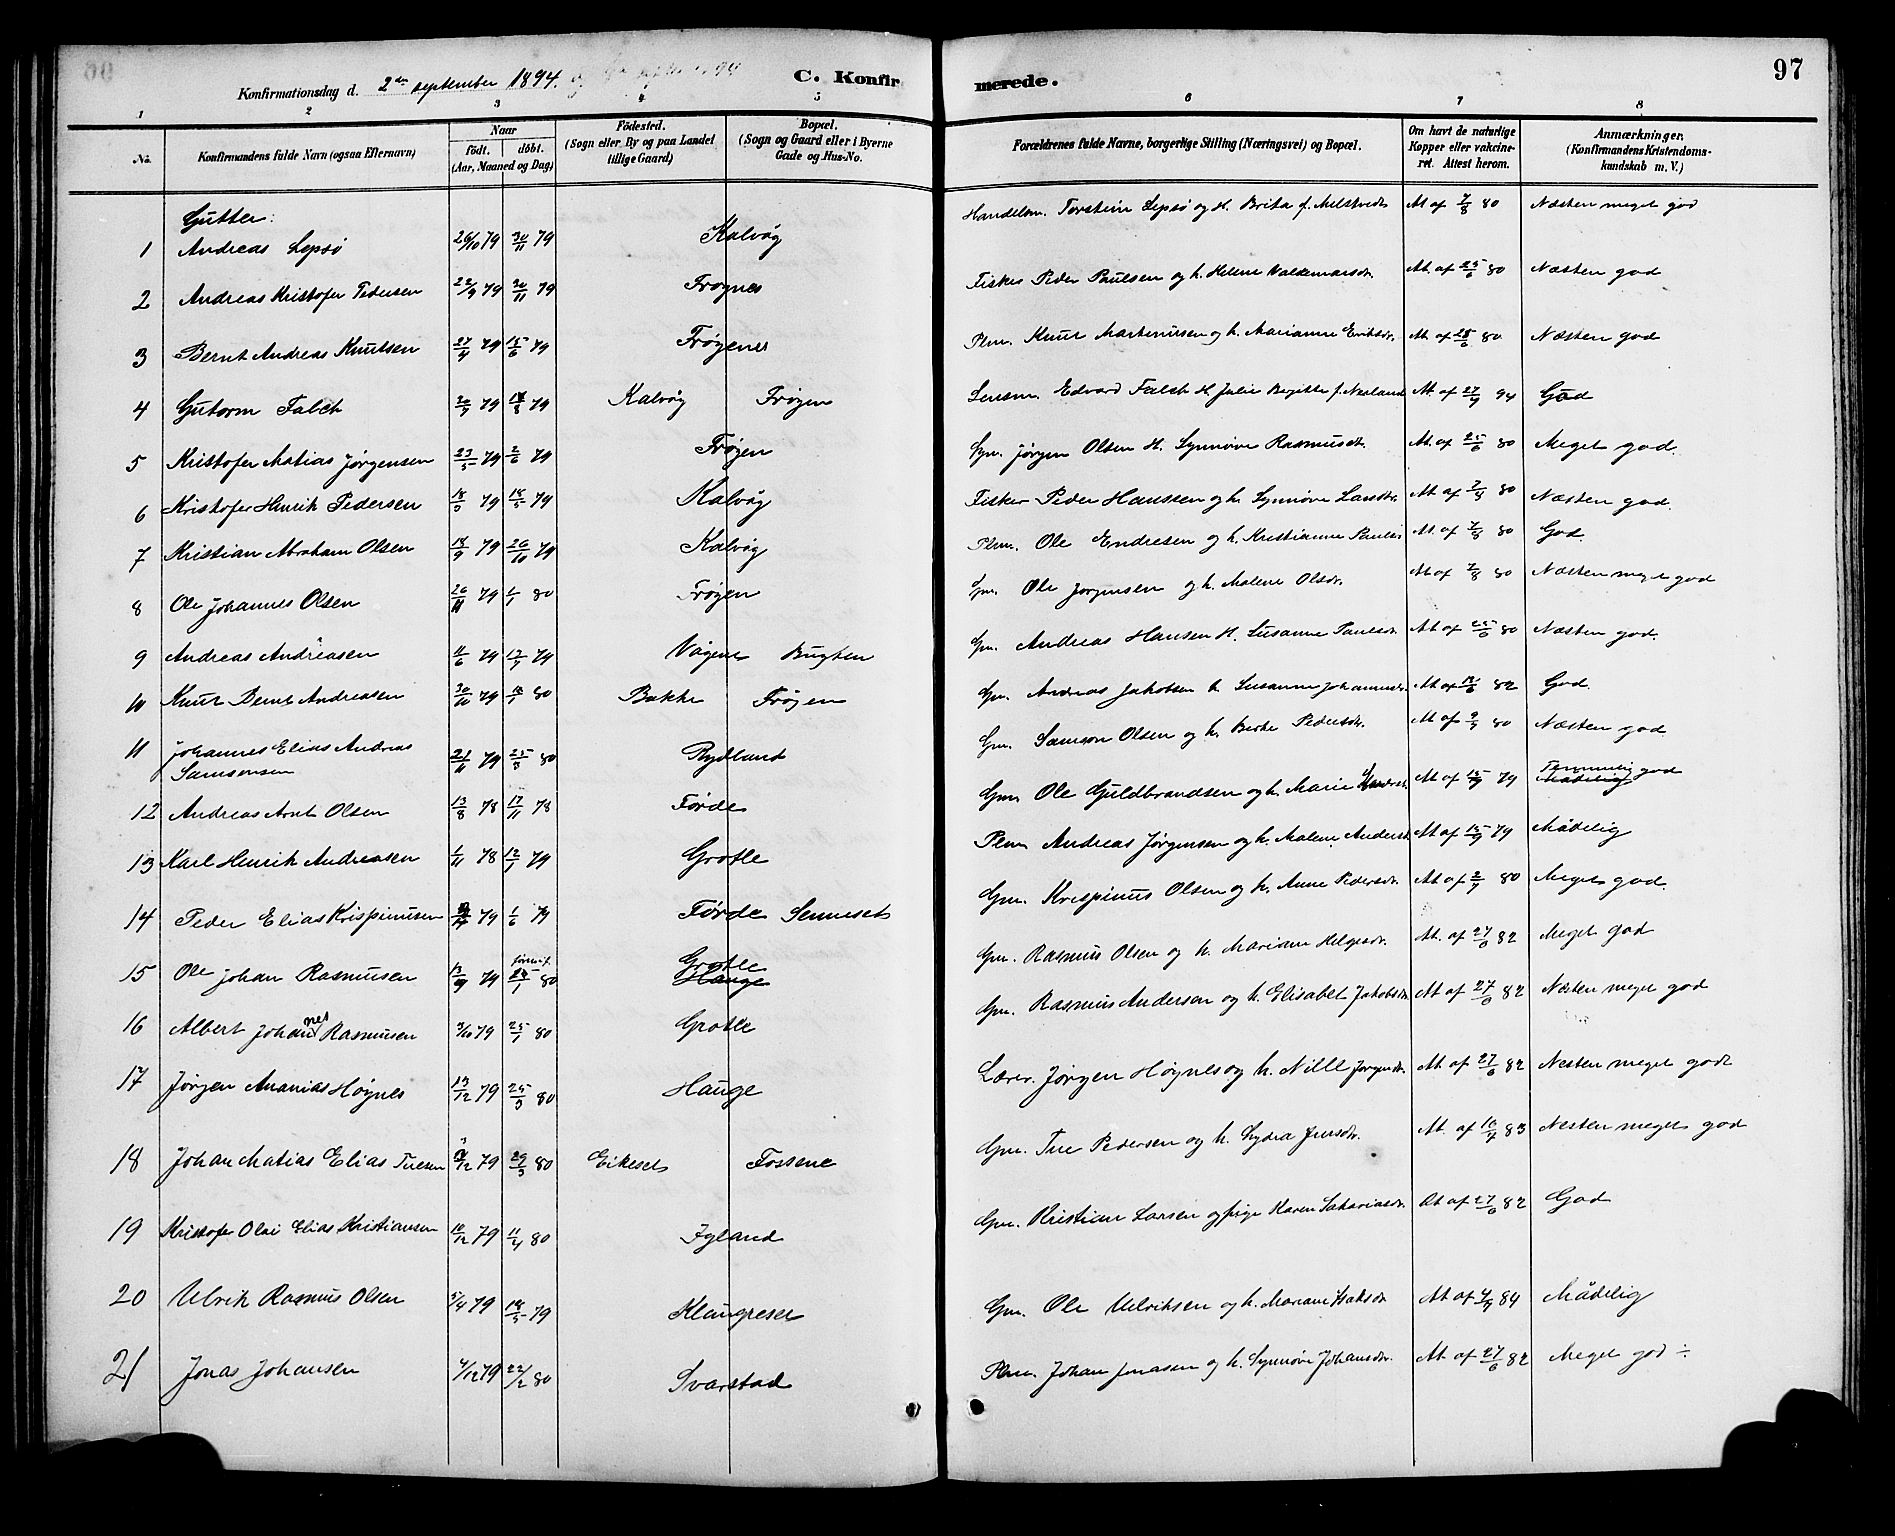 97
Konfirmationsdag d. 2den september 1894.
C. Konfirmerede.
1 2 3 4 5 6 7 8
No. Konfirmandens fulde Navn (ogsaa Efternavn) Naar födt. döbt. (Aar, Maaned og Dag) Födested. (Sogn eller By og paa Landet tillige Gaard) Bopæl. (Sogn og Gaard eller i Byerne Gade og Hus-No. Forældrenes fulde Navne, borgerlige Stilling (Næringsvei) og Bopæl. Om havt de naturlige Kopper eller vakcineret. Attest herom. Anmærkninger. (Konfirmandens Kristendomskundskab m. V.)
Gutter:
1 Andreas Lepsö 26/10 79 30/11 79 Kalvåg Handelsm. Torstein Lepsö og H. Brita f. At af 7/8 80 Næsten meget god
2 Andreas Kristofer Pedersen 22/9 79 30/11 79 Frøynes Fisker Peder Paulsen og h. Helene Valdemarsdr. At. af 25/6 80 Næsten god
3 Bernt Andreas Knutsen 27/4 79 15/6 79 Frøyenes Plm. Knut Martinussen og h. Marianne Eriksdr. At. af 25/6 80 Næsten god
4 Gutorm Falch Kalvåg Frøyen Lensm. Edvard Falch H. Julie Birgitte f. At. af 27/4 94 God
5 Kristofer Matias Jørgensen 23/5 79 2/6 79 Frøyen Gm. Jørgen Olsen H. Synnøve Rasmusdr. At. af 25/6 80 Meget god.
6 Kristofer Henrik Pedersen 79 18/5 79 Kalvåg Fisker Peder Hanssen og h. Synnøve Larsdr. At af 7/8 80 Næsten god.
7 Kristian Abraham Olsen 18/9 79 26/10 79 Kalvåg Plm. Ole Endresen og h. Kristianne Paulsdr. At af 7/8 80 God.
8 Ole Johannes Olsen 26/11 79 80 Frøyen Gm. Ole Jørgensen og h. Malene Olsdr. At af 7/8 80 Næsten meget god
9 Andreas Andreasen 11/6 79 79 Vågene Bugten Gm. Andreas Hansen H. Susanne Paulsdr. At af 25/6 80 Næsten god.
10 Knut Bernt Andreasen 30/10 79 80 Bakke Frøyen Gm. Andreas Jakobsen h. Susanne Johannesdr. At af 82 God.
11 Johannes Elias Andreas Samsonsen 21/11 79 25/3 80 Rydland Gm. Samson Olsen og h. Berte Pedersdr. At af 80 Næsten god
12 Andreas Arnt Olsen 13/8 78 17/11 78 Førde Gm. Ole Guldbrandsen og h. Marie At af 15/9 79 Temmelig god
13 Karl Henrik Andreasen 1/11 78 79 Grotle Plm. Andreas Jørgensen og h. Malene Andersdr. At af 15/9 79 Mådelig
14 Peder Elias Krispinusen 79 1/6 79 Førde Senneset Gm. Krispinus Olsen og h. Anne Pedersdr. At af 80 Meget god.
15 Ole Johan Rasmusen 13/9 79 25/1 80 Grotle Hauge Gm. Rasmus Olsen og h. Mariane Helgesdr. At. af 27/6 82 Meget god
16 Albert Johannes Rasmusen 3/10 79 25/1 80 Grotle Gm. Rasmus Andersen og h. Elisabet Jakobsdr. At af 27/6 82 Næsten meget god
17 Jørgen Ananias Høynes 13/12 79 25/3 80 Hauge Lærer. Jørgen Høynes og h. Nille Jørgensdr. At af 27/6 82 Næsten meget godt
18 Johan Matias Elias Tuesen 79 29/3 80 Eikeset Fossene Gm. Tue Pedersen og h. Lydia Jensdr. At. af 16/7 83 Næsten meget god
19 Kristofer Olai Elias Kristiansen 10/12 79 11/4 80 Igland Gm. Kristian Larsen og pige Karen Sakariasdr. At af 27/6 82 God
20 Ulrik Rasmus Olsen 5/4 79 18/5 79 Klaugeset Gm. Ole Ulriksen og h. Mariane Isaksdr At af 4/9 84 Mådelig
21 Jonas Johansen 4/12 79 22/2 80 Svarstad Plm. Johan Jonassen og h. Synnøve Johansdr. At af 27/6 82 Meget god ÷